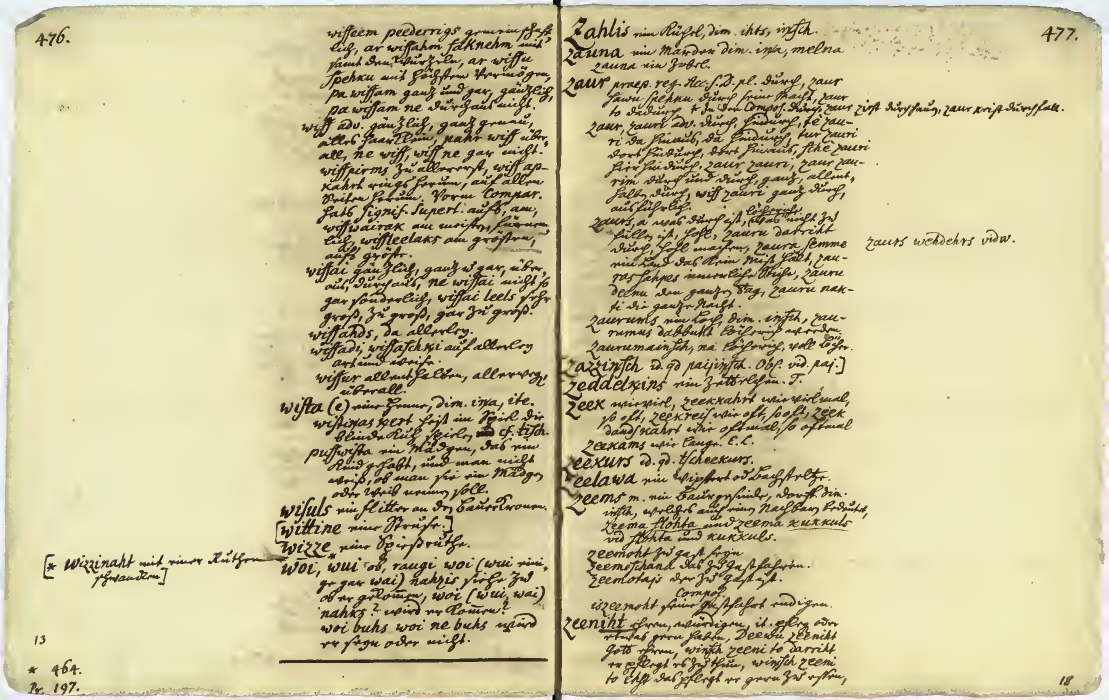 476.
wisseem peederrigs gemeinschaft
lich, ar wissahm saknehm mit
samt den Wurzeln, ar wissu
spehku mit höchsten Vermögen,
pa wissam ganz und gar, gänzlich,
pa wissam ne durchaus nicht.
wiss adv. gänzlich, ganz genau,
alles haarklein, pahr wiss über,,
all, ne wiss, wiss ne gar nicht.
wisspirms zu allererst, wiss ap-
kahrt rings herum, auf allen
Seiten herum. Vorm Compar.
hats signif. superl. aufs, am,
wisswairak am meisten,
lich, wissleelaks am größten,
aufs größte.
wissai gänzlich, ganz u gar, über,,
aus, durchaus, ne wissai nicht so
gar sonderlich, wissai leels sehr
groß, zu groß, gar zu groß.
wissahds, da allerley.
wissadi, wissaschki auf allerley
art und weise.
wissur allenthalben, allerwege,
überall.
wista (e) eine Henne, dim. ina, ite.
wistinas kert heist im Spiel die
blinde Kuh spielen cf. tisch.
pusswista ein Mädgen, das ein
Kind gehabt, und man nicht
weiß, ob man sie ein Mädgen
oder Weib nennen soll.
wisuls ein Flitter an den Bauer Kronen.
[wittine eine Struse.]
wizze eine Spießruthe.
[* wizzinaht mit einer Ruthen
schwanken]
woi, wui ob, raugi woi (wui eini-
ge gar wai) nahzis siehe zu
ob er gekommen, woi (wui, wai)
nahks? wird er kommen?
woi buhs woi ne buhs wird
er seyn oder nicht.
13
* 464.
Pr. 197.
477.
Zahlis ein Küchl, dim. ihts, insch.
zauna ein Marder dim. ina, melna
zauna ein Zobel.
zaur praep. reg. Acc. S. D. pl. durch, zaur
sawu spehku durch seine Macht, zaur
to dadurch it. in den Compos. durch, zaur zirst durchhaun, zaur krist durchfall.
zaur, zauri adv. durch, hindurch, te zau-
ri da hinaus, da hindurch, tur zauri
dort hindurch, dort hinaus, sche zauri
hier hindurch, zaur zauri, zaur zau-
rim durch und durch, ganz, allent,,
halb, durch, wiss zauri ganz durch,
ausführlich.
zaurs, a was durch ist, löcherich, was nicht zu
füllen ist, hohl, zauru darriht
durch, hohl machen, zaura semme
ein Land das kein Mist hält, zau-
ras sahpes innerliche Ruhr, zauru
deenu den ganzen Tag, zauru nak-
ti die ganze Nacht.
zaurs wehdehrs vidw.
zaurums ein Loch, dim. insch, zau-
rumus dabbuht löcherich werden.
zaurumainsch, na löcherich, voll Löcher.
zazzinsch id. qd paijinsch. Obs. vid. paij.]
zeddelkins ein Zettelchen. T.
zeek wieviel, zeekkahrt wie vielmal,
so oft, zeekreis wie oft, so oft, zeek
daudskahrt wie oftmal, so oftmal
zeekams wie lange. E. L.
zeekurs id. qd. tscheekurs.
zeelawa ein Wipstert od Bachsteltze.
zeems m. ein Baurgesinde, Dorff dim.
insch, welches auch einen Nachbarn bedeutet,
zeema slohta und zeema kukkuls
vid slohta und kukkuls.
zeemoht zu gast seyn
zeemoschana das Zu gastfahren.
zeemotajs der zu Gast ist.
Compos.
iszeemoht seine Gastfahrt endigen.
zeeniht ehren, würdigen, it. pfleg oder
etwas gern haben, Deewu zeeniht
Gott ehren, winsch zeeni to darriht
er pflegt es zu thun, winsch zeeni
to ehst das pflegt er gern zu essen,
18